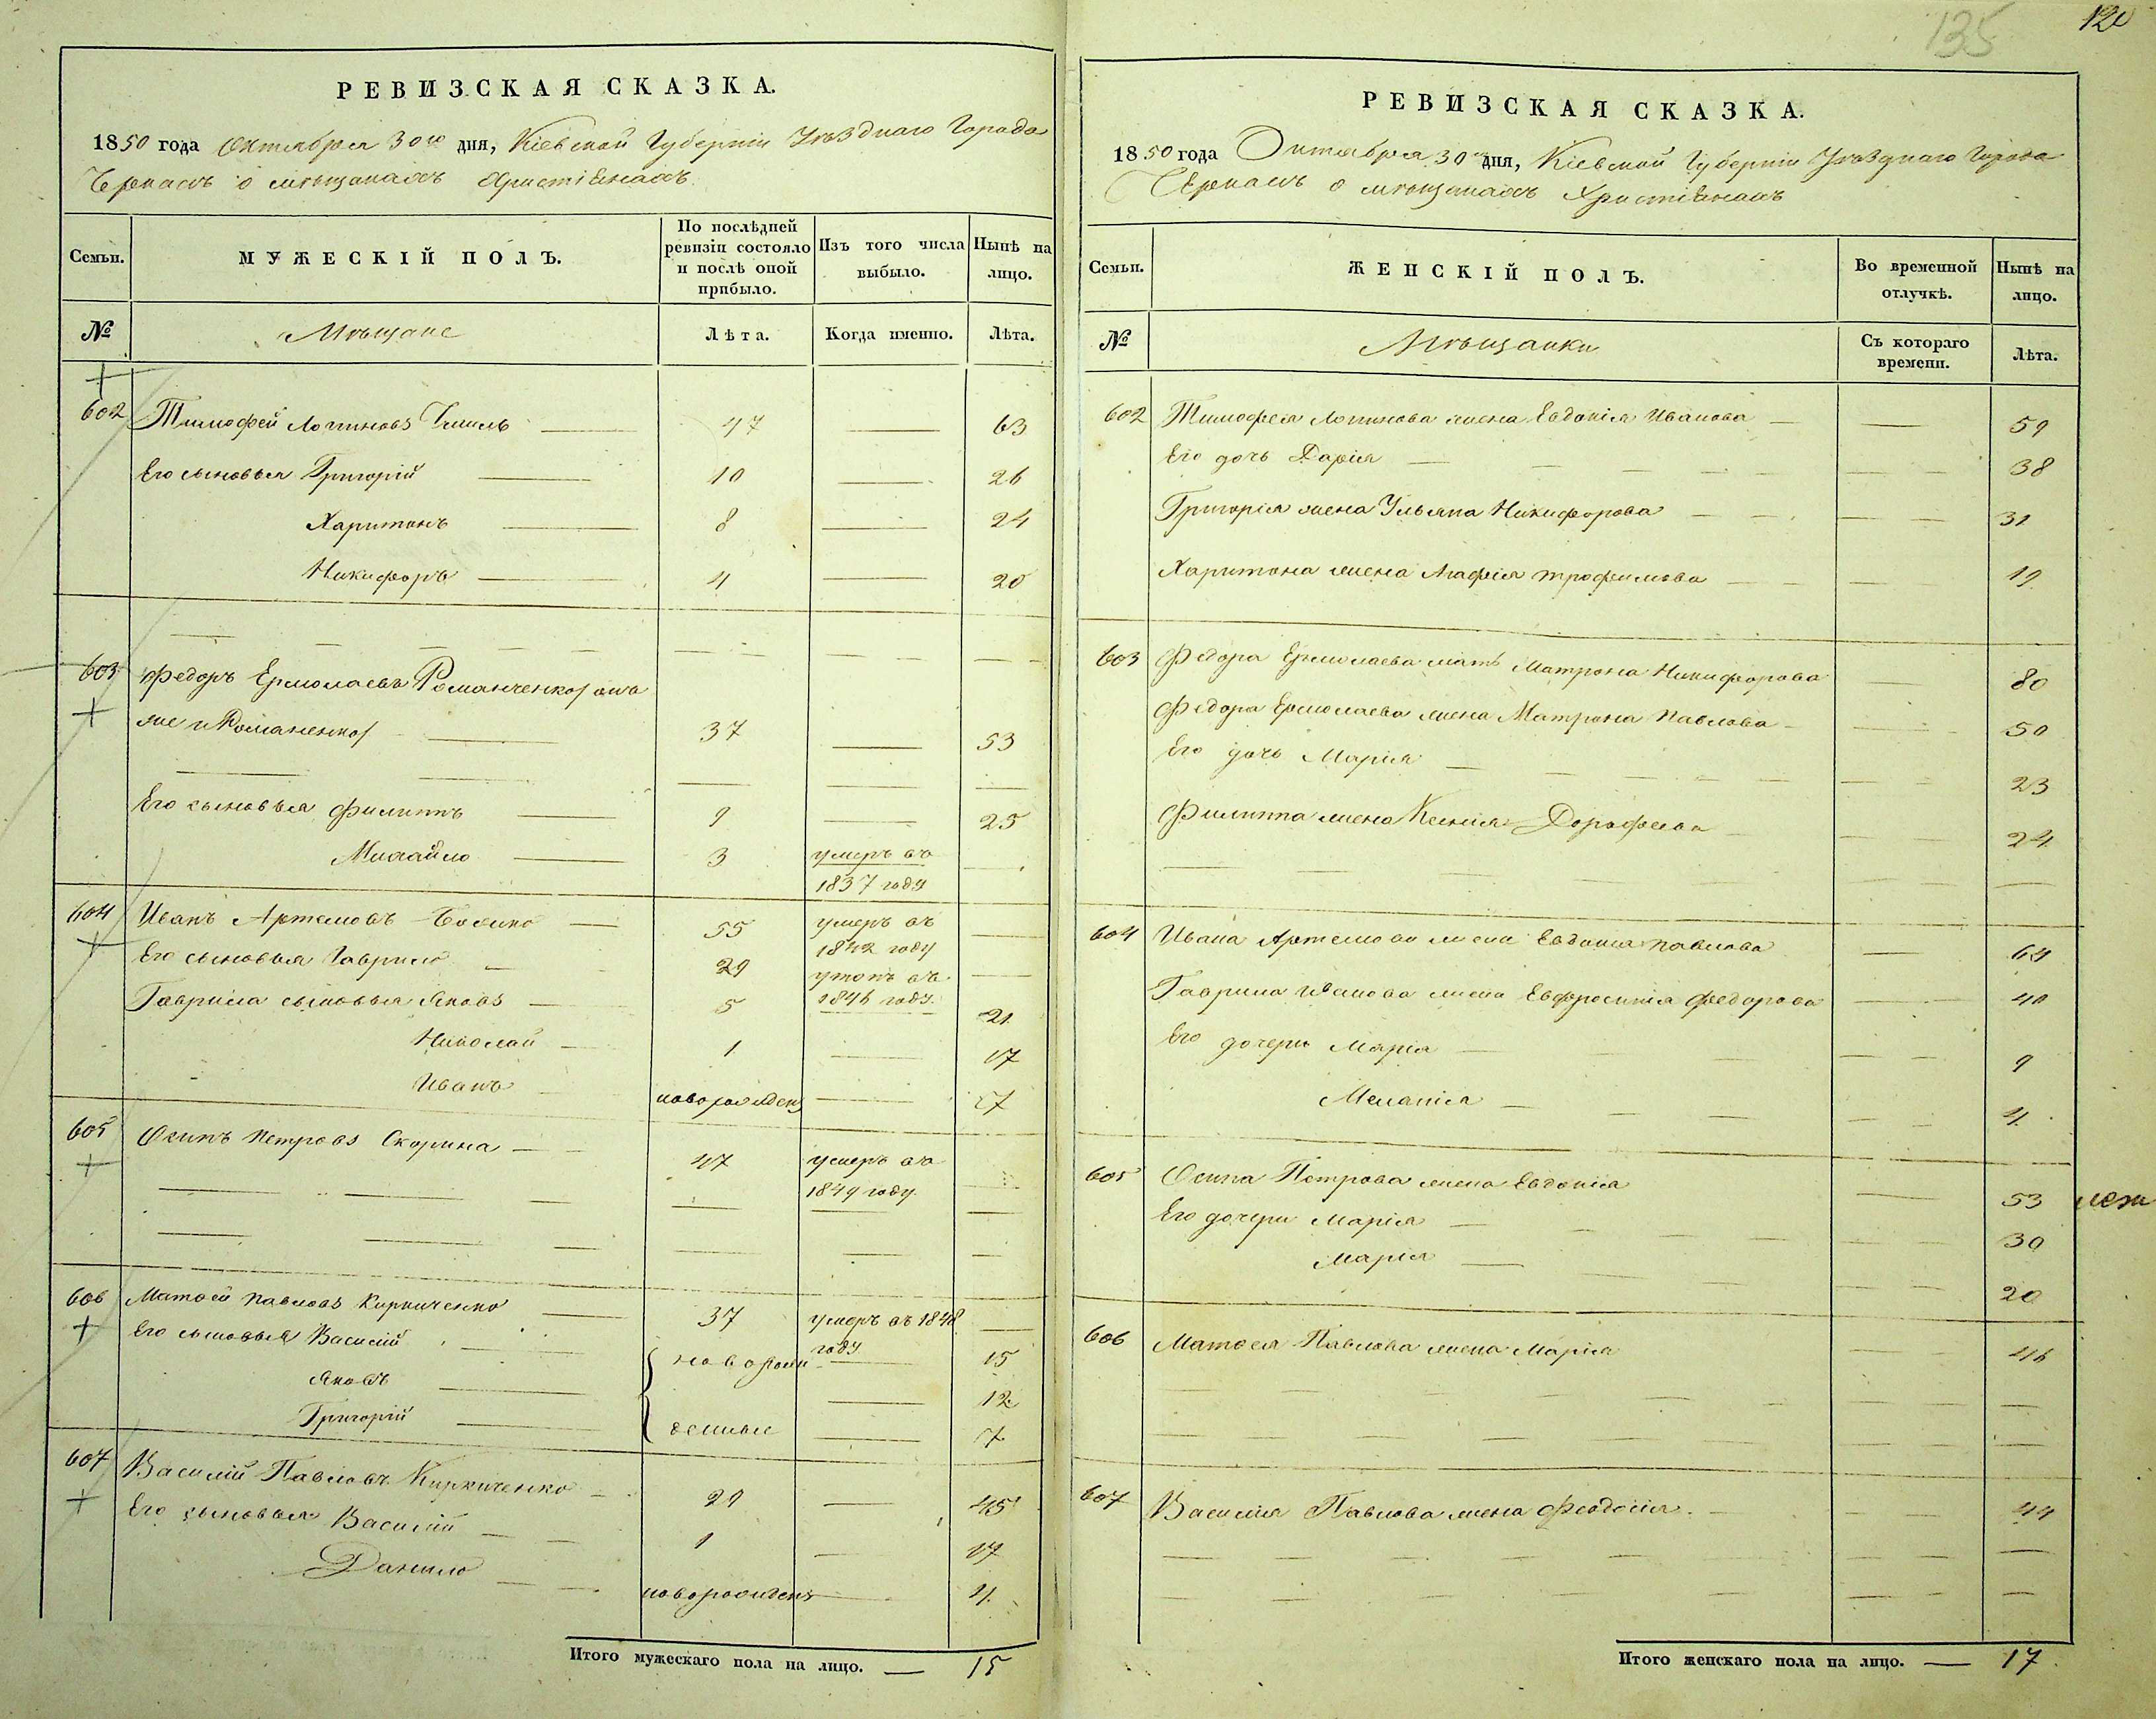 135
120
РЕВИЗСКАЯ СКАЗКА.
1850 года Октября 30го дня, Кіевской Губерніи Уѣзднаго Города
Черкасъ о мѣщанахъ Христіянахъ
Семьи.
МУЖЕСКІЙ ПОЛЪ.
По послѣдней
ревизіи состояло
и послѣ оной
прибыло.
Изъ того числа
выбыло.
Нынѣ на
лицо.
№
Мѣщане
Лѣта.
Когда именно.
Лѣта.
602 Тимофей Логиновъ 47 63
Его сыновья Григорій 10 26
Харитонъ 8 24
Никифоръ 4 20
603 Федоръ Ермолаевъ Романченко онъ
же и Романенко 37 53
Его сыновья Филиппъ 9 25
Михайло 3 умеръ въ
1837 году
604 Иванъ Артемовъ 55 умеръ въ
1842 году
Его сыновья Гаврило 29 утопъ въ
1846 году
Гаврила сыновья Яковъ 5 21
Николай 1 17
Иванъ новорожденъ 7
605 Осипъ Петровъ Скорина 47 умеръ въ
1849 году
606 Матвѣй Павловъ Кириченко 37 умеръ въ 1848
году
Его сыновья Василій новорож 15
Яковъ 12
Григорій денные 7
607 Василій Павловъ Кириченко 29 45
Его сыновья Василій 1 17
Данило новорожденъ 4
Итого мужескаго пола на лицо. — 15
РЕВИЗСКАЯ СКАЗКА.
1850 года Октября 30го дня, Кіевской Губерніи Уѣзднаго Города
Черкасъ о мѣщанахъ Христіянахъ
Семьи.
ЖЕНСКІЙ ПОЛЪ.
Во временной
отлучкѣ.
Нынѣ на
лицо.
№
Мѣщанки
Съ котораго
времени.
Лѣта.
602 Тимофея Логинова жена Евдокія Иванова 59
Его дочь Дарія 38
Григорія жена Ульяна Никифорова 31
Харитона жена Агафія Трофимова 19
603 Федора Ермолаева мать Матрона Никифорова 80
Федора Ермолаева жена Матрона Павлова 50
Его дочь Марія 23
Филиппа жена Ксенія Дорофеева 24
604 Ивана Артемова жена Евдокія Павлова 64
Гаврила Иванова жена Евфросинія Федорова 40
Его дочери Марія 9
Меланія 4
605 Осипа Петрова жена Евдокія 53
Его дочери Марія 30
Марія 20
606 Матвея Павлова жена Марія 46
607 Василія Павлова жена Феодосія 44
Итого женскаго пола на лицо. — 17